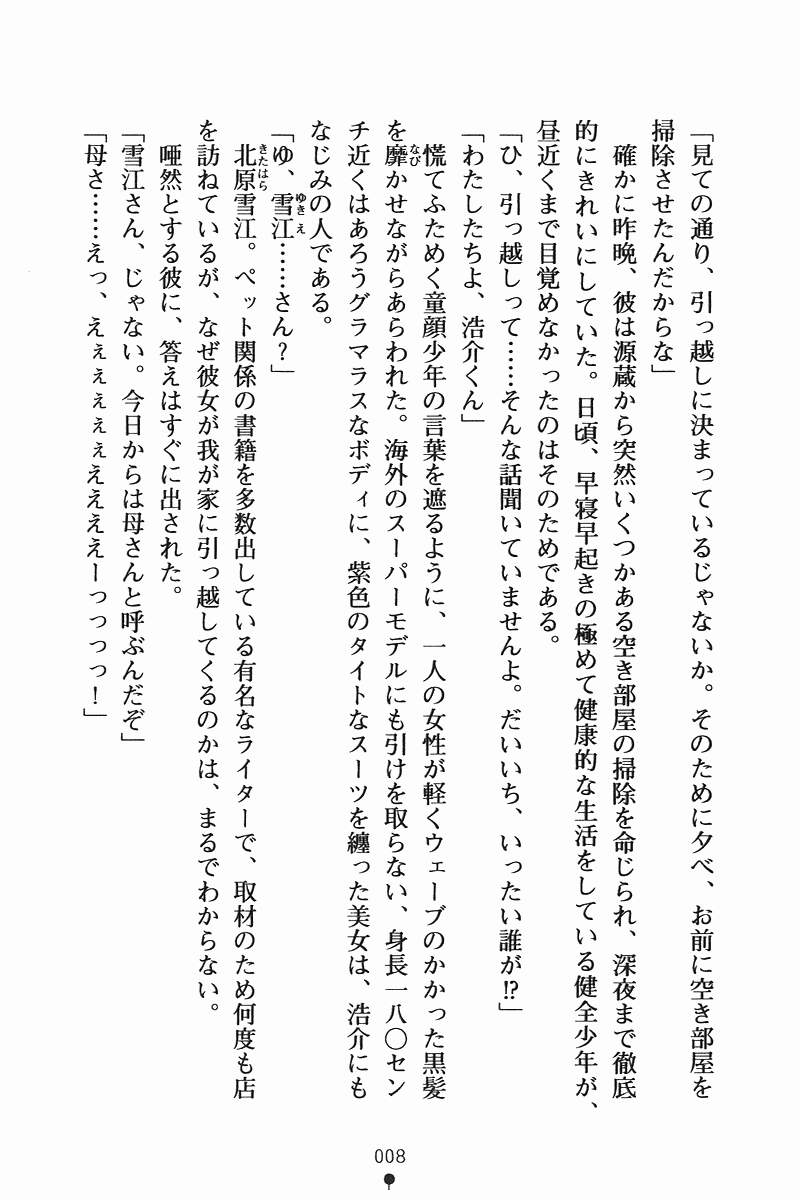 「見ての通り、引っ越しに決まっているじゃないか。そのために夕べ、お前に空き部屋を
掃除させたんだからな」
　確かに昨晩、彼は源蔵から突然いくつかある空き部屋の掃除を命じられ、深夜まで徹底
的にきれいにしていた。日頃、早寝早起きの極めて健康的な生活をしている健全少年が、
昼近くまで目覚めなかったのはそのためである。
「ひ、引っ越しって……そんな話聞いていませんよ。だいいち、いったい誰が⁉」
「わたしたちよ、浩介くん」
　慌てふためく童顔少年の言葉を遮るように、一人の女性が軽くウェーブのかかった黒髪
を靡かせながらあらわれた。海外のスーパーモデルにも引けを取らない、身長一八〇セン
なび
チ近くはあろうグラマラスなボディに、紫色のタイトなスーツを纏った美女は、浩介にも
なじみの人である。
「ゆ、雪江……さん？」
ゆきえ
　北原雪江。ペット関係の書籍を多数出している有名なライターで、取材のため何度も店
きたはら
を訪ねているが、なぜ彼女が我が家に引っ越してくるのかは、まるでわからない。
　唖然とする彼に、答えはすぐに出された。
「雪江さん、じゃない。今日からは母さんと呼ぶんだぞ」
「母さ……えっ、えぇぇぇぇぇええええーっっっっ！」
008